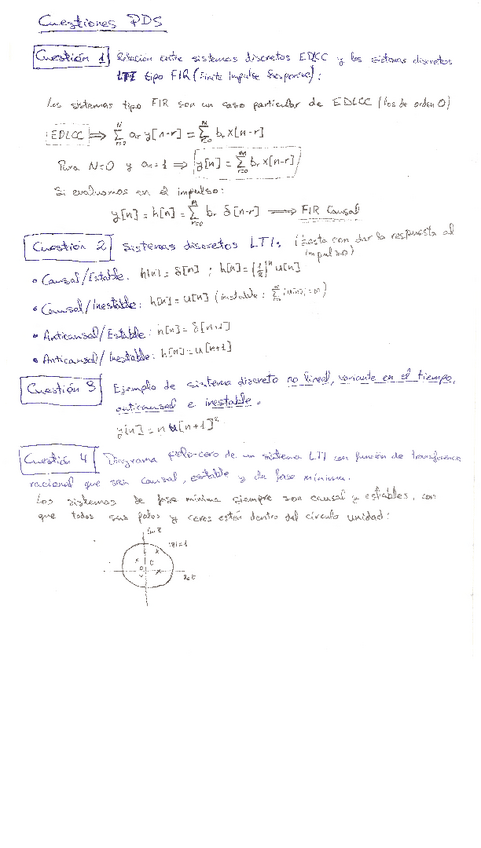 Cuestiones PDS
Cuestión 1 Relación entre sistemas discretos EDLCC y los sistemas discretos
LTI tipo FIR (Finite Impulse Response):
Los sistemas tipo FIR son un caso particular de EDLCC (los de orden 0)
EDLCC ⟹ ∑ aᵣ y[n-r] = ∑ bᵣ x[n-r]
Para N=0 y a₀=1 ⟹ y[n] = ∑ bᵣ x[n-r]
Si evaluamos en el impulso:
y[n] = h[n] = ∑ bᵣ δ[n-r] ⟹ FIR Causal
Cuestión 2 Sistemas discretos LTI. (Basta con dar la respuesta al
impulso)
• Causal/Estable: h[n] = δ[n] ; h[n] = (1/2)ⁿ u[n]
• Causal/Inestable: h[n] = u[n] (inestable:
• Anticausal/Estable: h[n] = δ[n+1]
• Anticausal/Inestable: h[n] = u[n+1]
Cuestión 3 Ejemplo de sistema discreto no lineal, variante en el tiempo,
anticausal e inestable.
y[n] = n u[n+1]²
Cuestión 4 Diagrama polo-cero de un sistema LTI con función de transferencia
racional que sea causal, estable y de fase mínima.
Los sistemas de fase mínima siempre son causal y estables, con
que todos sus polos y ceros están dentro del círculo unidad:
|z|=1